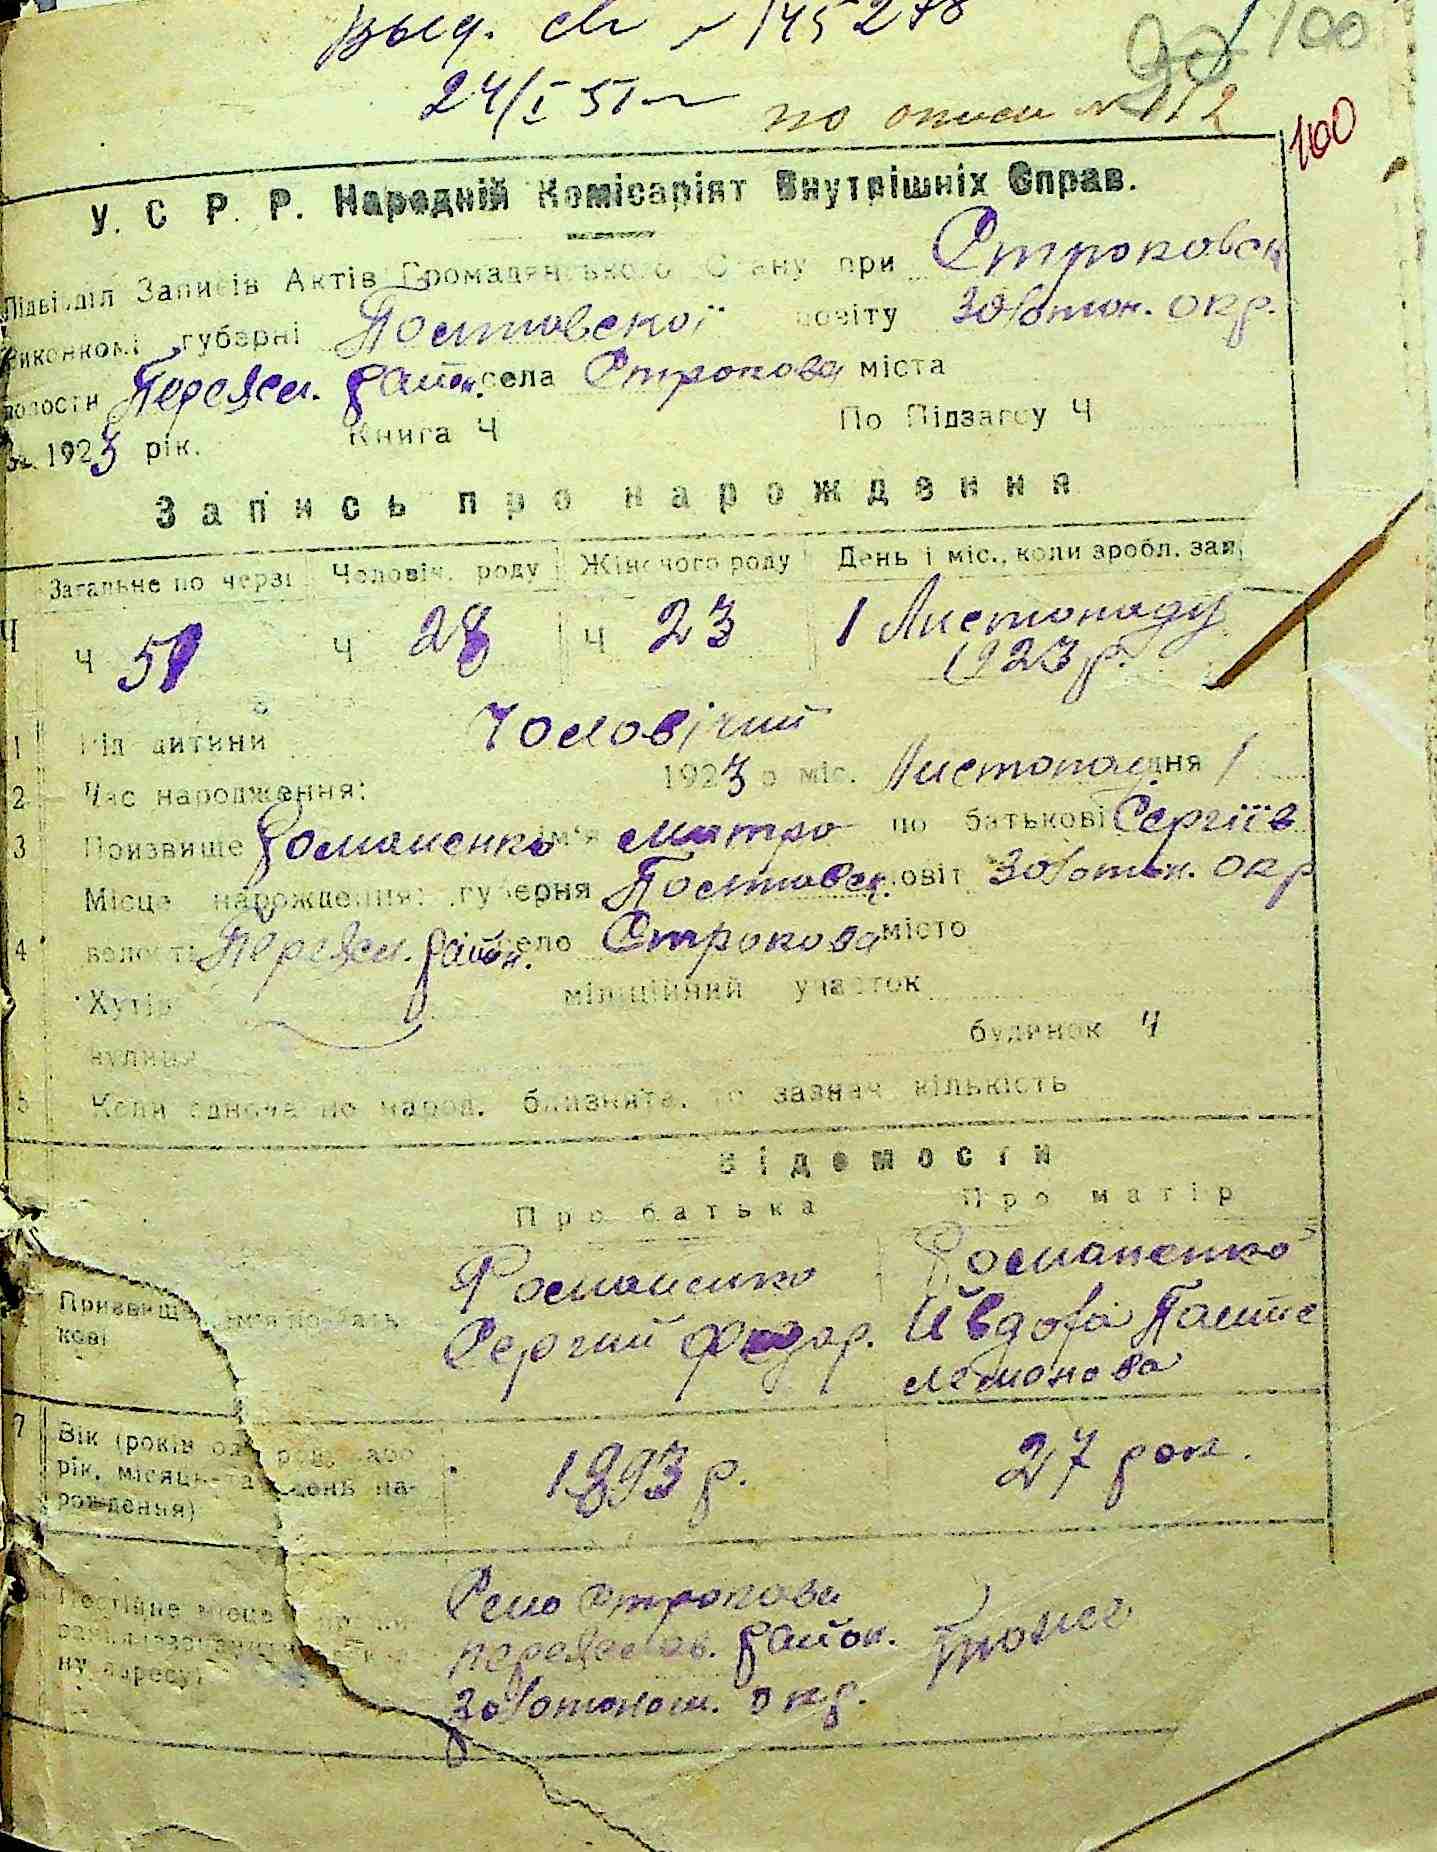 выд. св № 145278
24/I 51 г
100
по описи № 112
100
У. С. Р. Р. Народній Комісаріят Внутрішніх Справ.
Підвідділ Записів Актів Громадянського Стану при Строковск
виконкомі губерні Полтовскої повіту Золотон. окр.
волости Переясл. район. села Строкова міста
За 1923 рік. Книга Ч По Підзагсу Ч
Запись про нарождення
Загальне по черзі Чоловіч. роду Жіночого роду День і міс., коли зробл. зап
Ч Ч 51 Ч 28 Ч 23 1 Листопаду
1923 р.
1 Рід дитини Чоловічий
2 Час народження: 1923 р міс. Листопад дня 1
3 Призвище Романенко ім'я Митро по батькові Сергіїв
Місце нарождення: губерня Полтовск. повіт Золотон. окр
4 волость Переясл. район. село Строкова місто
Хутір міліційний участок
вулиця будинок Ч
5 Коли одноча не народ. близнята, то зазнач кількість
Відомости
Про батька Про матір
Романенко Романенко
Призвище, імя по бать-
кові
Сергий Федор. Ивдофа Панте
лемонова
7 Вік (років од роду або
рік, місяць та день на-
рождення)
1893 р. 27 рок.
Постійне місце
ну адресу)
Село Строкова
переяслав. район. Тоже
Золотонош. окр.